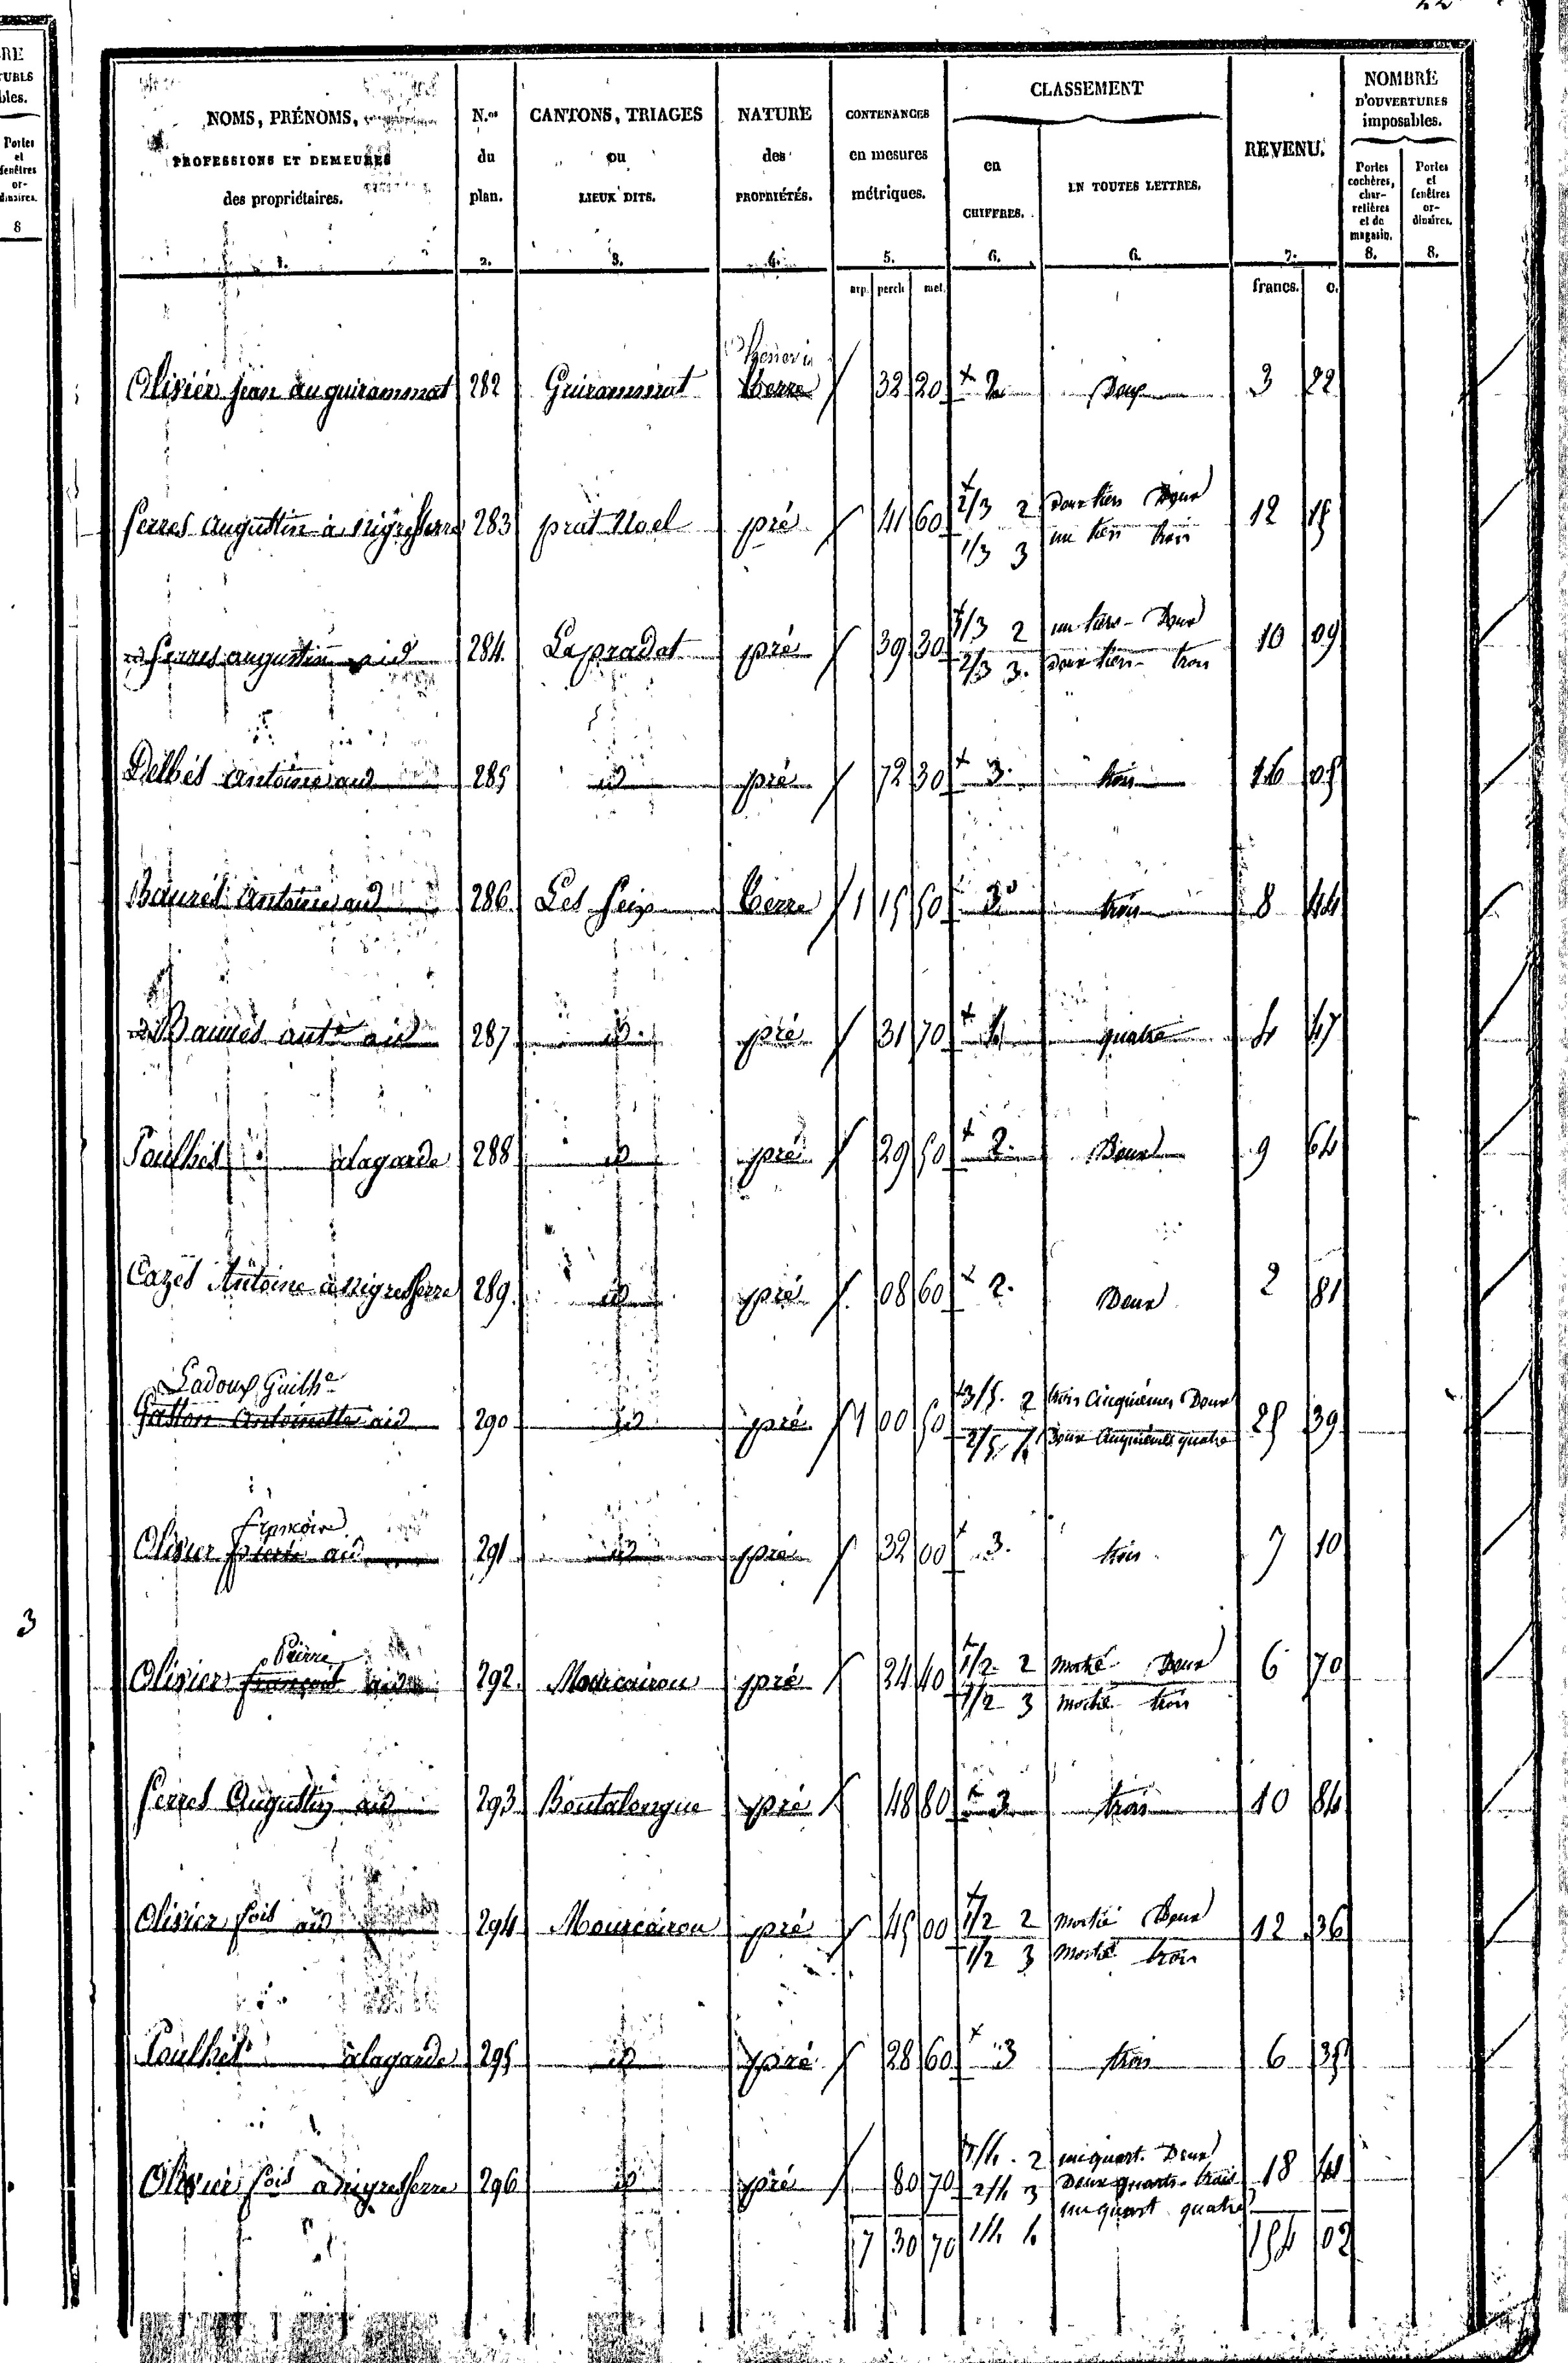 NOMS, PRÉNOMS,
PROFESSIONS ET DEMEURES
des propriétaires.
1.
N.os
du
plan.
2.
CANTONS, TRIAGES
ou
LIEUX DITS.
3.
NATURE
des
PROPRIÉTÉS.
4.
CONTENANCES
en mesures
métriques.
5.
CLASSEMENT
en
CHIFFRES.
6.
EN TOUTES LETTRES.
6.
REVENU.
7.
NOMBRE
D'OUVERTURES
imposables.
Portes
cochères,
char-
retières
et de
magasin.
8.
Portes
et
fenêtres
or-
dinaires.
8.
arp. perch met. francs. c.
Olivier jean au guirammat 282 Guirammat terre 32 20 2 Deux 3 22
ferres augustin à nigresserre 283 prat Noel pré 41 60 2/3 2 Deux tiers Deux 12 15
1/3 3 un tiers trois
ferres augustin aid 284 Lapradat pré 39 30 1/3 2 un tiers Deux 10 09
2/3 3. Deux tiers trois
Delbés antoine aid 285 id pré 72 30 3. trois 16 05
Baurés antoine aid 286 Les terre 1 15 50 3 trois 8 44
Baurés ante aid 287 id pré 31 70 4 quatre 4 47
Poulhés alagarde 288 id pré 29 50 2. Deux 9 64
Cazes Antoine à nigresserre 289. id pré 08 60 2. Deux 2 81
Ladoux Guilhe
Gaston Antoinette aid 290 id pré 1 00 50 3/5. 2 trois Cinquièmes Deux 25 39
2/5. 4 Deux Cinquièmes quatre
francois
Olivier pierre aid 291 id pré 32 00 3. trois 7 10
Pierre
Olivier françois aid 292. Mourcairou pré 24 40 1/2 2 moitié Deux 6 70
1/2 3 moitié trois
ferres Augustin aid 293 Boutalongue pré 48 80 3 trois 10 84
Olivier fois aid 294 Mourcairou pré 45 00 1/2 2 moitié Deux 12 36
1/2 3 moitié trois
Poulhés alagarde 295 id pré 28 60 3 trois 6 35
Olivier fois a nigresserre 296 id pré 80 70 1/4. 2 un quart Deux 18 41
2/4 3 Deux quarts trois
1/4 4 un quart quatre
7 30 70 154 02